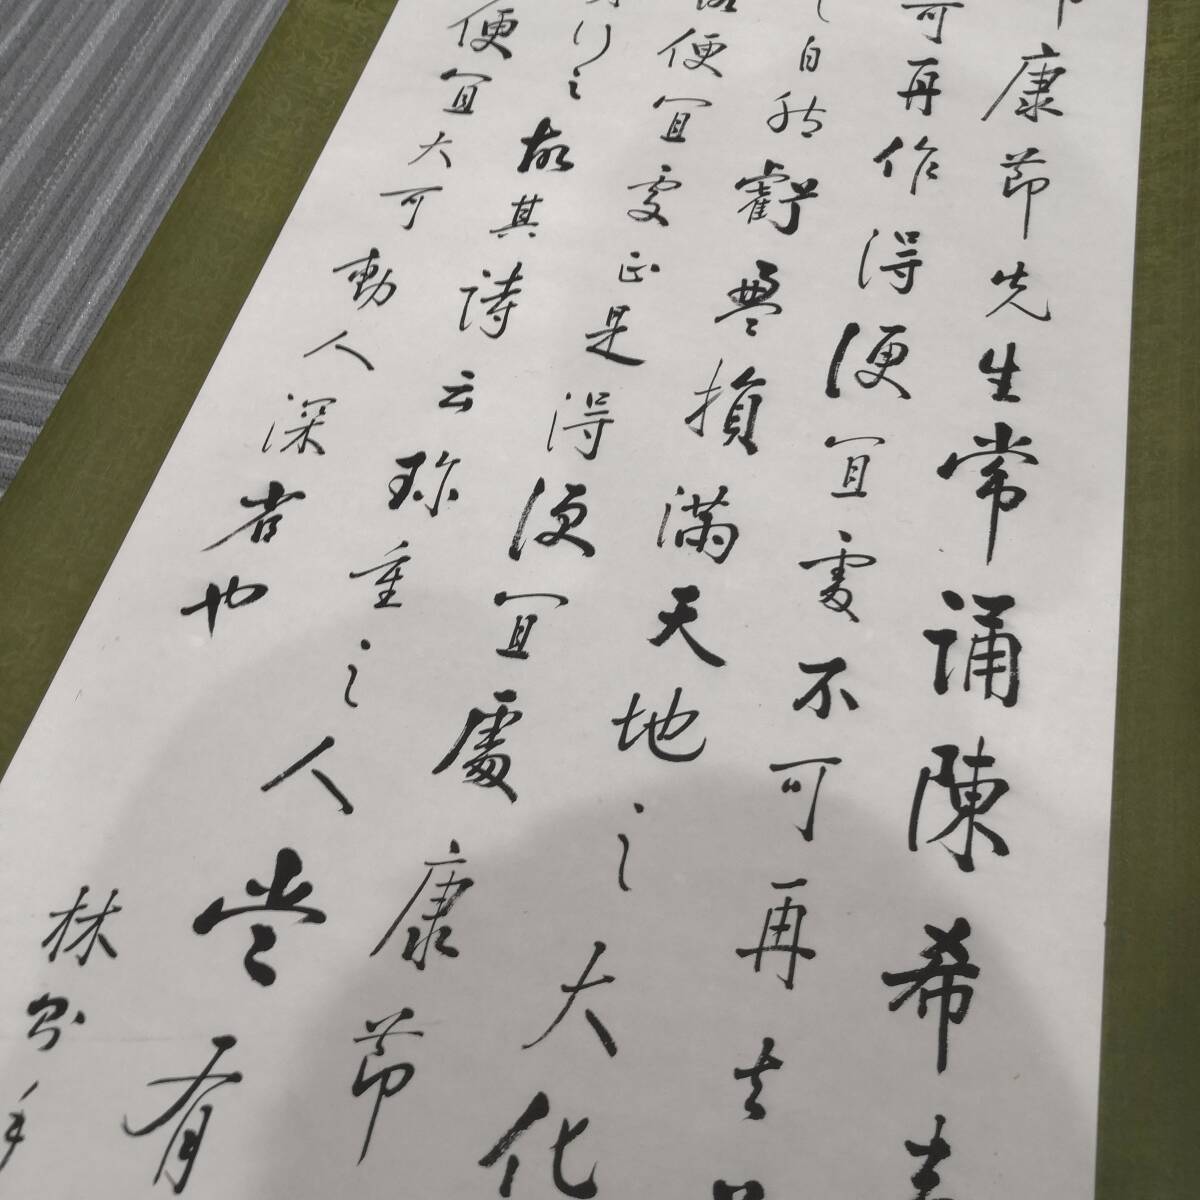 康節先生常誦陳希
可再作得便宜處不可再去
之自然虧盈損滿天地之大化
便宜處正是得便宜處康節
行之故其詩云珍重之人嘗有
便宜大可動人深省也
林